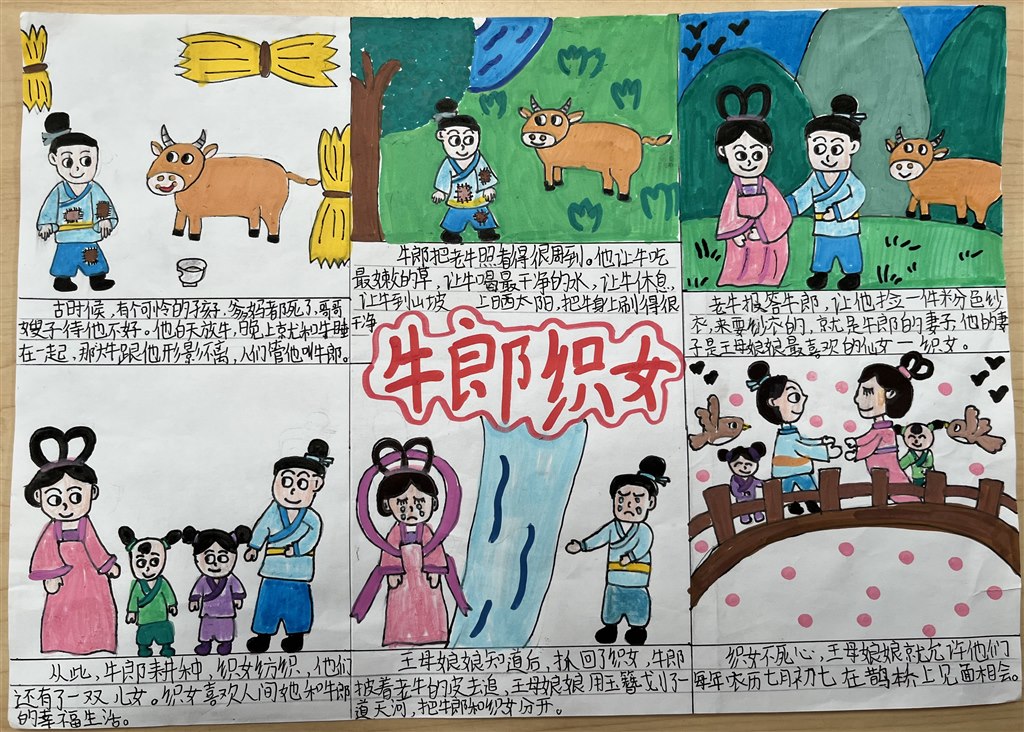 古时候，有个可怜的孩子，爸妈都死了，哥哥
嫂子待他不好。他白天放牛，晚上就和牛睡
在一起，那头牛跟他形影不离，人们管他叫牛郎。
牛郎把老牛照看得很周到。他让牛吃
最嫩的草，让牛喝最干净的水，让牛休息，
让牛到山坡上晒太阳，把牛身上刷得很
干净
老牛报答牛郎，让他拿一件粉色纱
衣，来要纱衣的，就是牛郎的妻子，他的妻
子是王母娘娘最喜欢的仙女一织女。
牛郎织女
从此，牛郎耕种，织女纺织，他们
还有了一双儿女。织女喜欢人间她和牛郎
的幸福生活。
王母娘娘知道后，抓回了织女，牛郎
披着老牛的皮去追，王母娘娘用玉簪划了一
道天河，把牛郎和织女分开。
织女不死心，王母娘娘就允许他们
每年农历七月初七在鹊桥上见面相会。